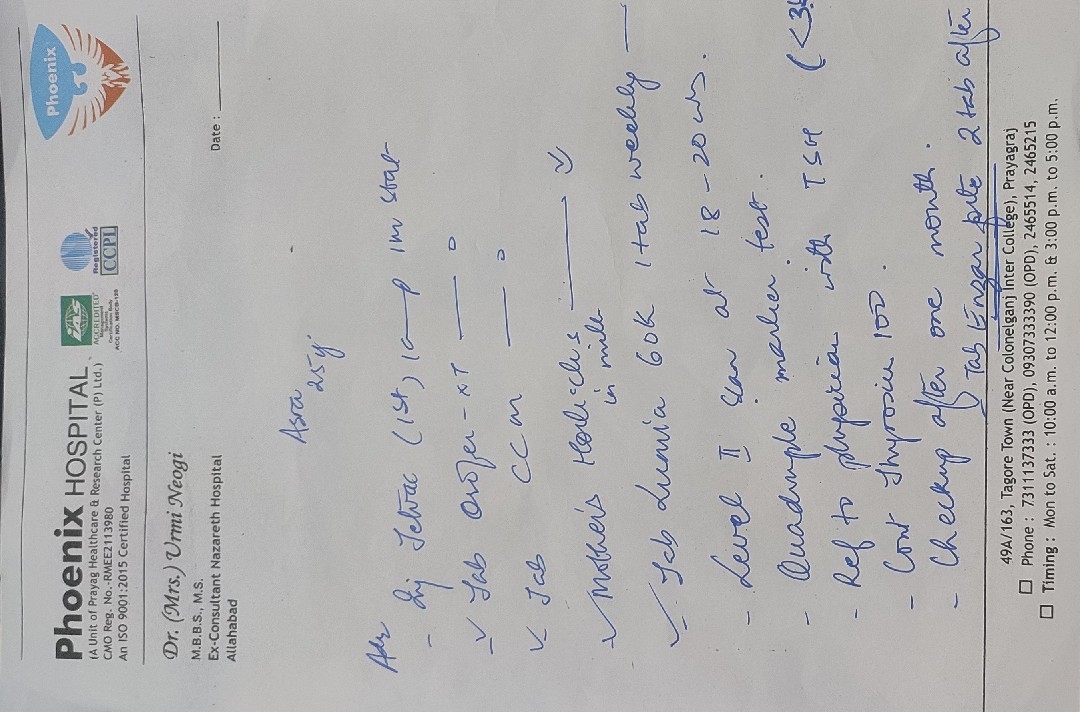 Phoenix HOSPITAL
(A Unit of Prayag Healthcare & Research Center (P) Ltd.)
CMO Reg. No.-RMEE2113980
An ISO 9001:2015 Certified Hospital
ACCREDITED
Registered
CCPL
Phoenix
Dr. (Mrs.) Urmi Neogi
M.B.B.S., M.S.
Ex-Consultant Nazareth Hospital
Allahabad
Date :
25y
Adv
- Inj Tetvac (1st) IM stat
- Tab Orofer-XT
Tab CCM
Mother's Horlicks
in milk
- Tab Lumia 60K 1 tab weekly
- Level II scan at 18-20 wks.
- Quadruple marker test.
- Ref to physician with TSH
- Cont Thyroxin 100.
- Checkup after one month.
Tab 2 tab after
49A/163, Tagore Town (Near Colonelganj Inter College), Prayagraj
Phone : 7311137333 (OPD), 09307333390 (OPD), 2465514, 2465215
Timing : Mon to Sat. : 10:00 a.m. to 12:00 p.m. & 3:00 p.m. to 5:00 p.m.